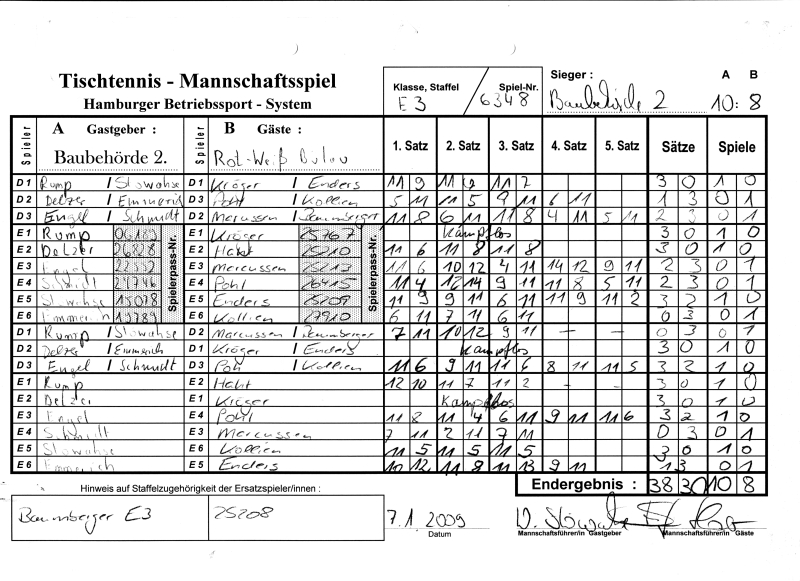 Tischtennis - Mannschaftsspiel
Hamburger Betriebssport - System
Klasse, Staffel E3 / Spiel-Nr. 6348
Sieger : Baubehörde 2 A B 10 : 8
Spieler A Gastgeber : Baubehörde 2. Spieler B Gäste : Rot-Weiß 1. Satz 2. Satz 3. Satz 4. Satz 5. Satz Sätze Spiele
D1 Rump / Slowahse D1 Kröger / Enders 11 9 11 9 11 7 3 0 1 0
D2 Delzer / Emmerich D3 Pohl / Kollien 5 11 11 5 9 11 6 11 1 3 0 1
D3 Engel / Schmidt D2 Marcussen / Baumberger 11 8 6 11 11 8 4 11 5 11 2 3 0 1
E1 Rump Spielerpass-Nr. E1 Kröger 25767 Spielerpass-Nr. Kampflos 3 0 1 0
E2 Delzer 26828 E2 Hakt 25210 11 6 11 8 11 8 3 0 1 0
E3 Engel 22552 E3 Marcussen 25213 11 6 10 12 4 11 14 12 9 11 2 3 0 1
E4 Schmidt 21746 E4 Pohl 26415 11 4 12 14 9 11 11 8 5 11 2 3 0 1
E5 Slowahse 15078 E5 Enders 25209 11 9 9 11 6 11 11 9 11 2 3 2 1 0
E6 Emmerich 13789 E6 Kollien 27910 6 11 7 11 6 11 0 3 0 1
D1 Rump / Slowahse D2 Marcussen / Baumberger 7 11 10 12 9 11 – – 0 3 0 1
D2 Delzer / Emmrich D1 Kröger / Enders Kampflos 3 0 1 0
D3 Engel / Schmidt D3 Pohl / Kollien 11 6 9 11 11 6 8 11 11 5 3 2 1 0
E1 Rump E2 Hakt 12 10 11 7 11 2 – – 3 0 1 0
E2 Delzer E1 Kröger Kampflos 3 0 1 0
E3 Engel E4 Pohl 11 8 11 4 6 11 9 11 11 6 3 2 1 0
E4 Schmidt E3 Marcussen 7 11 2 11 7 11 0 3 0 1
E5 Slowahse E6 Kollien 11 5 11 5 11 5 3 0 1 0
E6 Emmerich E5 Enders 10 12 11 8 11 13 9 11 1 3 0 1
Hinweis auf Staffelzugehörigkeit der Ersatzspieler/innen : Endergebnis : 38 30 10 8
Baumberger E3 25208 7.1.2009
Datum Mannschaftsführer/in Gastgeber Mannschaftsführer/in Gäste